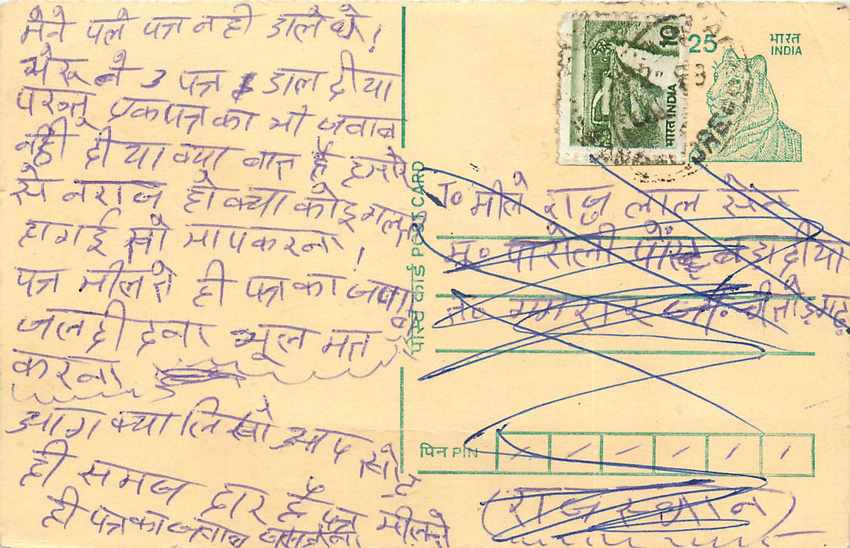 मेने पले पत्र नही डाले थे।
ने 3 पत्र डाल दीया
परन्तू एकपत्र का भी जवाब
नही दी या क्या बात है हमारे
से नराज हो क्या कोइ गलती
हागई सो मापकरना।
पत्र मीलते ही पत्र का जवाब
जलदी देना भूल मत
करना
आग क्या लिखो आप खोद
ही समज दार है पत्र मीलते
ही पत्र का जवाब
पोस्ट कार्ड POST CARD
10
भारत INDIA
25
भारत
INDIA
To मीले राजु लाल सेन
मु० पारोली पो०
जी० चीतोड़गढ़
पिन PIN
(राजस्थान)